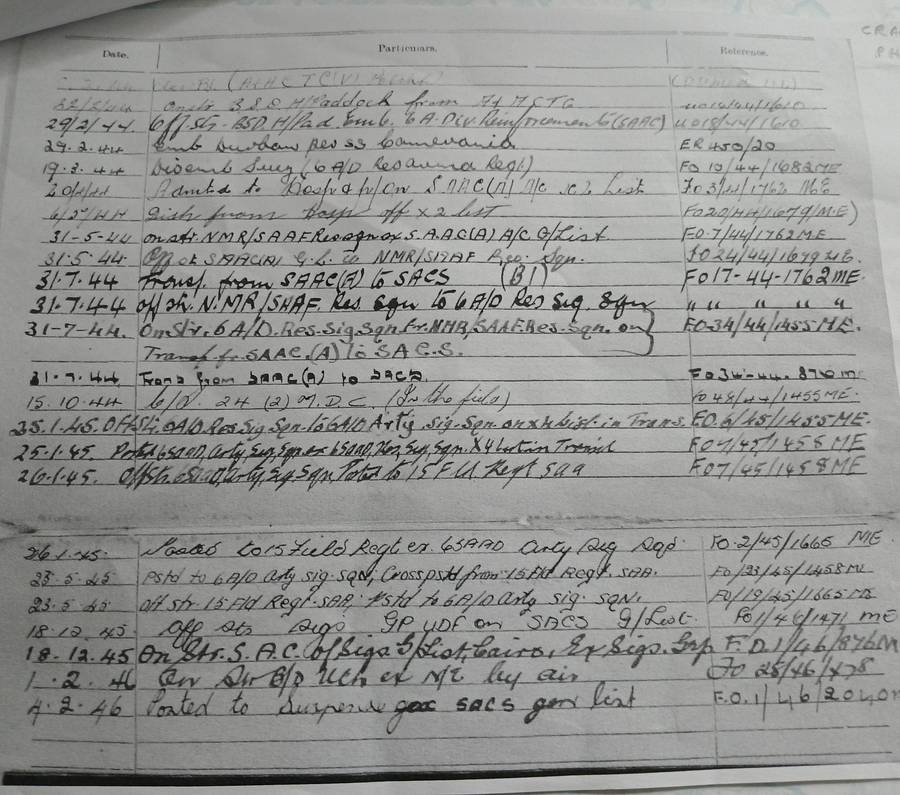 Date. Particulars. Reference.
CRA
29/2/44. Off Str. BSD. H/Pad. Emb. 6 A. Div. Reinforcements (SAAC) 1610
29.2.44 Emb Durban per SS ER 450/20
19.3.44 Disemb Suez (6 A/D Regt) FO 19/44/1682 ME
Admitted to Hosp & p/on SAAC(A) A/C X2 List FO 3/44/1762 ME
Dish from Hosp off X2 list FO 20/44/1679/M.E)
31-5-44 on str. NMR/SAAF Res sqn ex S.A.A.C(A) A/C G/List FO.7/44/1762 ME
31.5.44 Off str SAAC(A) G.L. to NMR/SAAF Rec. Sqn. FO 24/44/1679 ME.
31.7.44 Transf. from SAAC(A) to SACS (B1) FO 17-44-1762 ME.
31.7.44 off str. N.M.R/SAAF. Res Sqn to 6 A/D Res Sig. Sqn " " " " "
31-7-44. On Str. 6 A/D. Res. Sig. Sqn. Fr. NMR, SAAF. Res. Sqn. on FO.34/44/1455 ME.
Transf. fr. SAAC. (A) to S.A.C.S.
31.7.44 Trans from SAAC(A) to SACS. FO 34-44. 876 m
15.10.44 24 (2) M.D.C. (In the field) FO 48/44/1455 ME.
25.1.45. Off Str. 6A/D. Res. Sig. Sqn. to 6A/D Arty. Sig. Sqn. on X4 List. in Trans. FO.6/45/1455 ME.
25.1.45 Posted 6SAAD, Arty, Sig, Sqn, ex 6SAAD, Res, Sig, Sqn. X4 List in Transit FO 7/45/1458 ME
26.1.45. Off str. 6SAAD, Arty, Sig Sqn, Posted to 15 Fd Regt SAA FO7/45/1458 ME
26.1.45. Posted to 15 Field Regt ex. 6SAAD Arty Sig Sqd. FO.2/45/1665 ME.
23.5.45 Pstd to 6A/D Arty sig. sqn; Cross pstd from 15 Fld Regt. SAA. FO/23/45/1458 ME
23.5.45 off str 15 Fld Regt. SAA; Pstd to 6A/D Arty sig. sqn. FO/19/45/1665 ME
18.12.45 Off Str Sigs GP UDF on SACS G/List. FO1/46/1471 ME
18.12.45 On Str. S.A.C. of Sigs G/List, Cairo, Ex Sigs. Grp F.O.1/46/876M
1.2.46 On Str ex M/E by air FO 28/46/478
4.2.46 Posted to Suspense SACS gen list F.O.1/46/2040